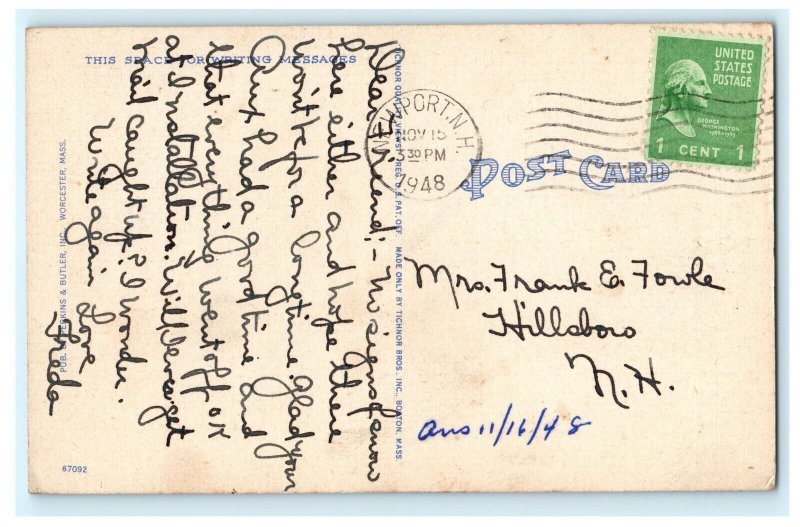 THIS SPACE FOR WRITING MESSAGES
Dear Friend:- No signs of snow
here either and hope there
won't be for a long time. Glad your
Aux had a good time and
that everything went off OK
at Installation. Will we ever get
mail caught up? I wonder.
Write again Love
Freda
PUB. BY PERKINS & BUTLER, INC., WORCESTER, MASS.
67092
TICHNOR QUALITY VIEWS REG. U. S. PAT. OFF. MADE ONLY BY TICHNOR BROS., INC., BOSTON, MASS.
NEWPORT, N.H.
NOV 15
3 30 PM
1948
UNITED
STATES
POSTAGE
GEORGE
WASHINGTON
1789-1797
1 CENT 1
POST CARD
Mrs. Frank E. Fowle
Hillsboro
N.H.
ans 11/16/48